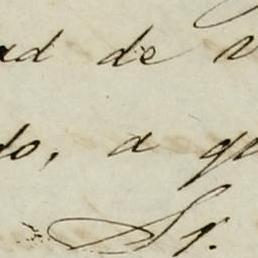 ad de v
do, a qu
Sr.